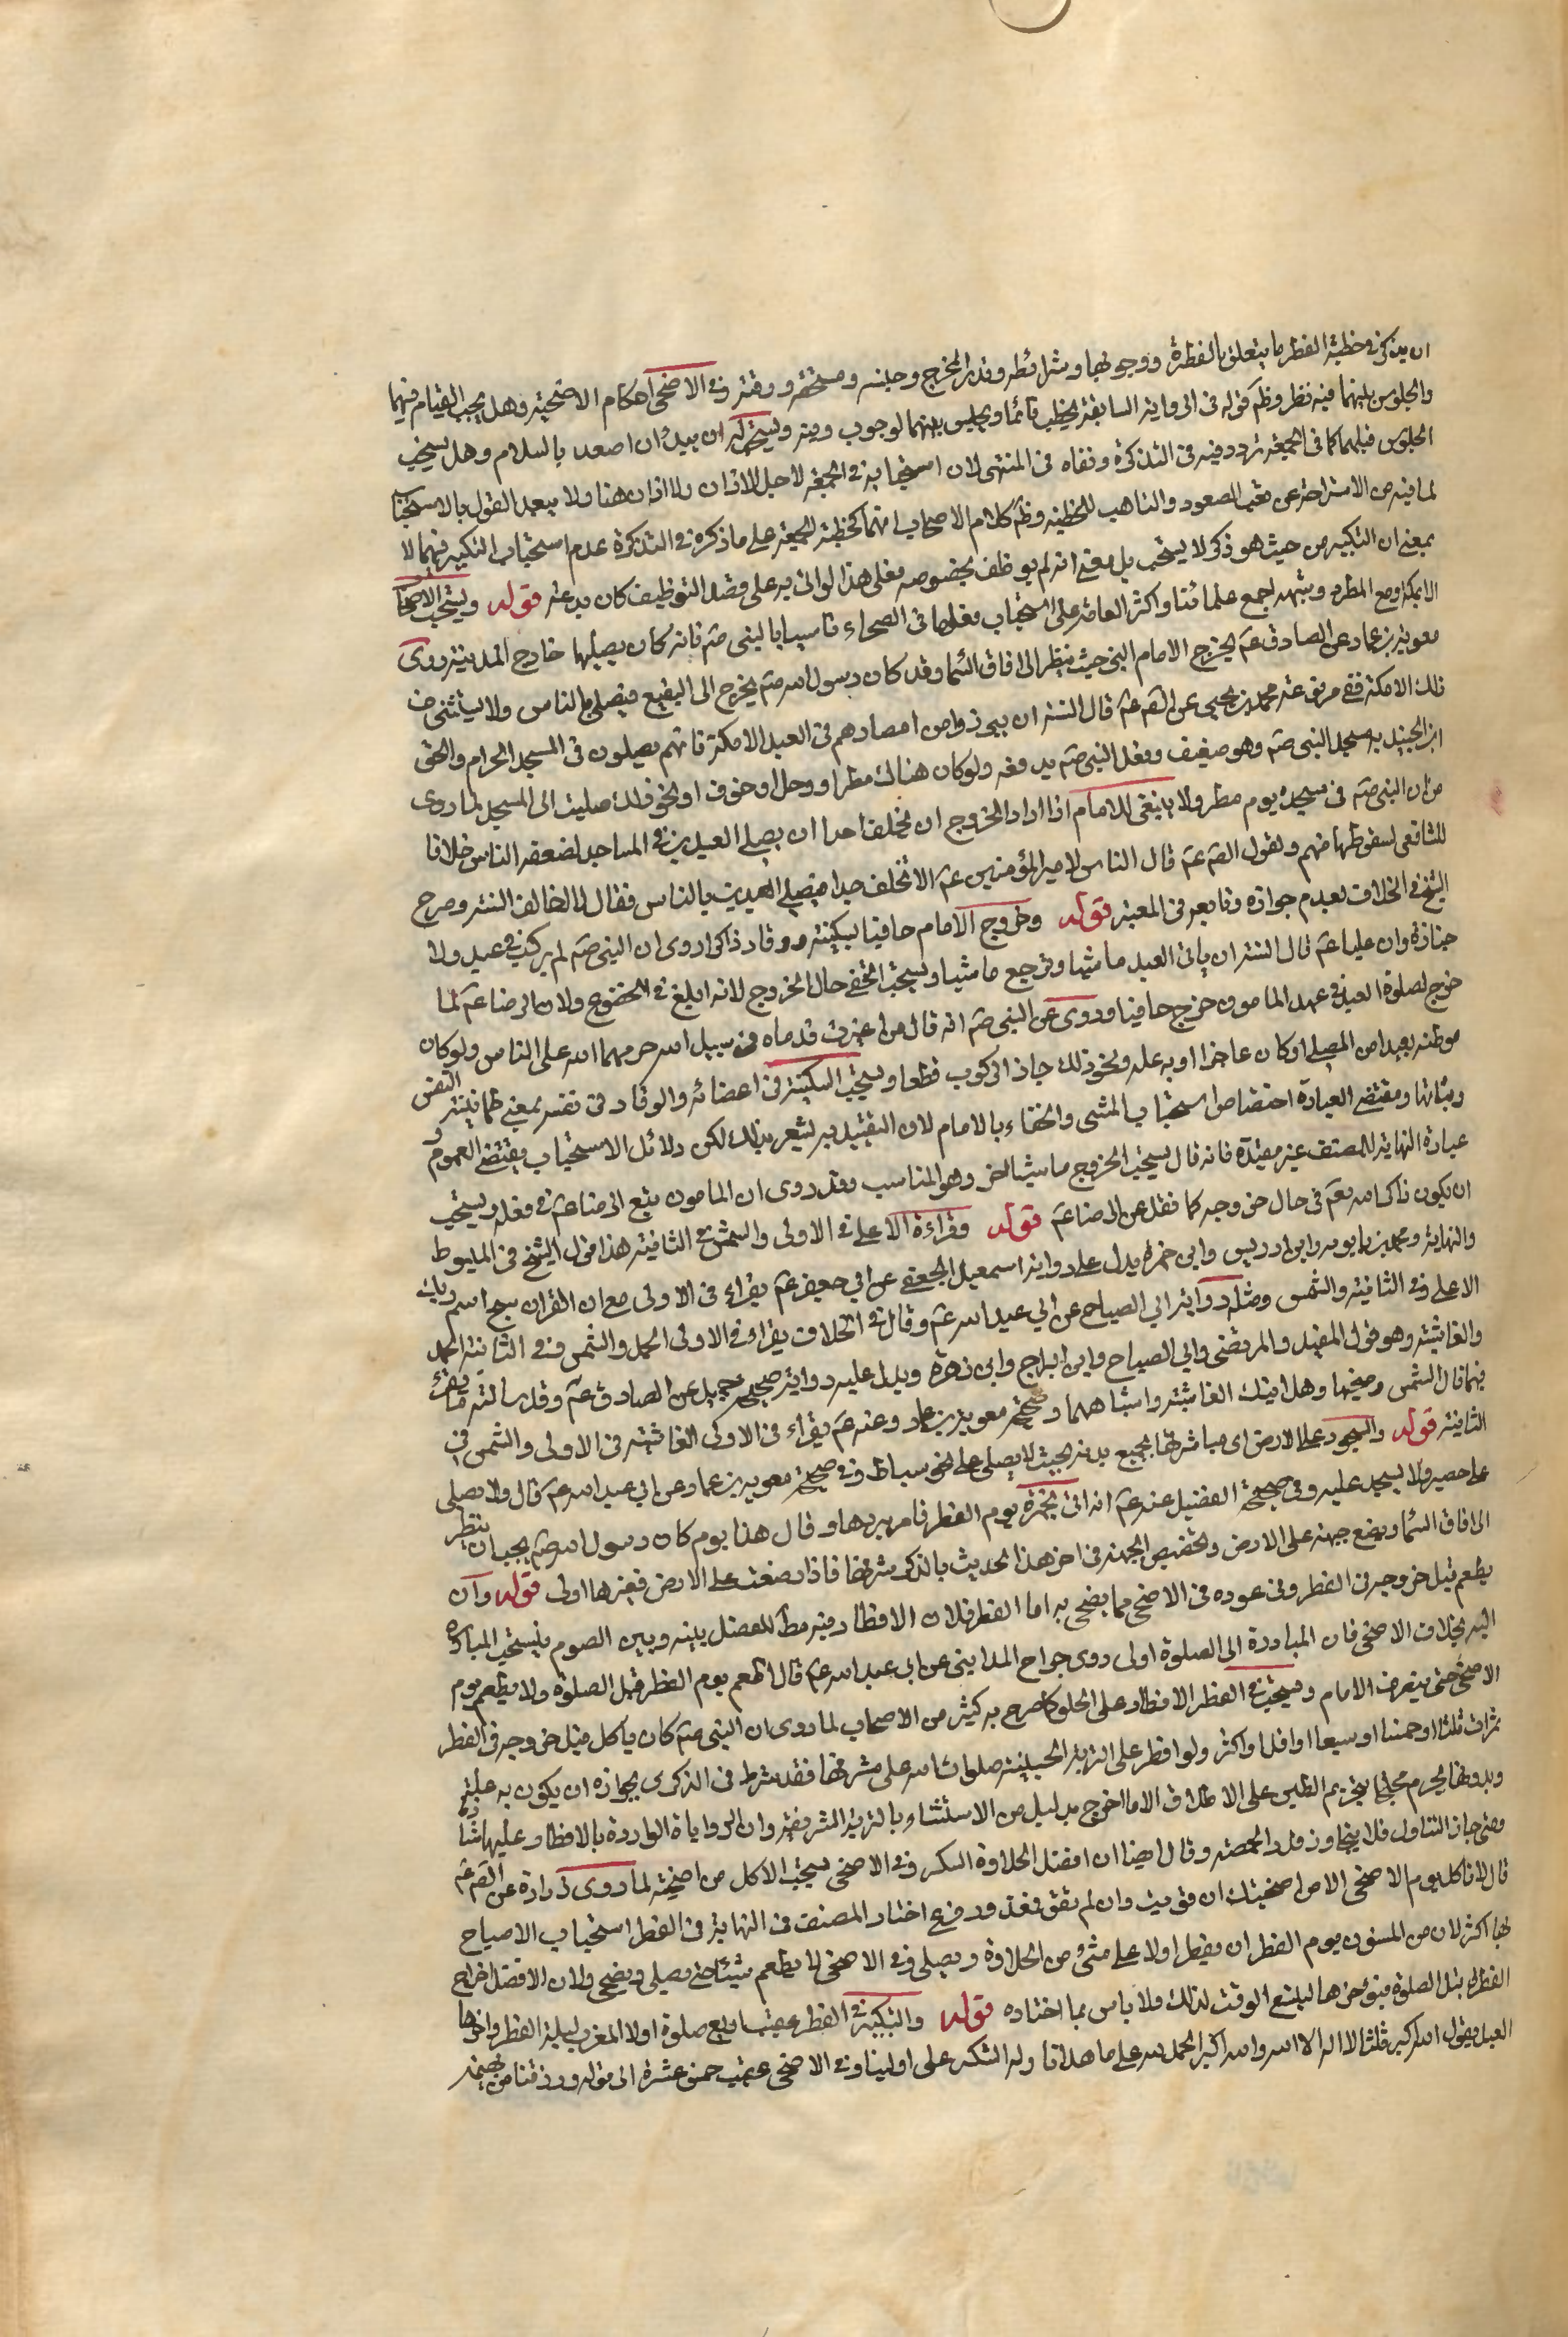 ان يذكر في خطبة الفطر ما يتعلق بالفطرة ووجوبها وشرائطه وقدر المخرج وجنسه ومستحقه ووقته وفي الاضحى احكام الاضحية وهل يجب القيام فيهما
والجلوس بينهما فيه نظر وظم قوله في الرواية السابقة يخطب قائما ويجلس بينهما لوجوب وفيه ويستحب له ان يبدأ ان اصعد بالسلام وهل يستحب
الجلوس قبلهما كما في الجمعة تردد فيه في التذكرة ونفاه في المنتهى لان استحبابه في الجمعة لاجل الاذان ولا اذان هنا ولا يبعد القول بالاستحباب
لما فيه من الاستراحة عن تعب الصعود والتاهب للخطبة وظم كلام الاصحاب انهما كخطبة الجمعة على ما ذكره في التذكرة عدم استحباب التكبير فيهما لا
بمعنى ان التكبير من حيث هو ذكر لا يستحب بل بمعنى انه لم يوظف بخصوصه فعلى هذا لو اتى به على قصد التوظيف كان بدعة قوله ويستحب الاصحار
الا بمكة ومع المطر وشبهه اجمع علمائنا واكثر العامة على استحباب فعلها في الصحراء تاسيا بالنبي صم فانه كان يصليها خارج المدينة روى
معوية بن عمار عن الصادق عم يخرج الامام البر حيث ينظر الى افاق السما وقد كان رسول الله صم يخرج الى البقيع فيصلي بالناس ولا يستثنى من
ذلك الا مكة ففي مرفوعة محمد بن يحيى عن الصم عم قال السنة ان يبرزوا من امصارهم في العيد الا مكة فانهم يصلون في المسجد الحرام والحق
ابن الجنيد به مسجد النبي صم وهو ضعيف وفعل النبي صم يدفعه ولو كان هناك مطر او وحل او خوف او نحو ذلك صليت الى المسجد لما روى
من ان النبي صم في مسجده يوم مطر ولا ينبغي للامام اذا اراد الخروج ان يخلف احدا ان يصلي العيدين في المساجد لضعفه الناس خلافا
للشافعي لسقوطها منهم ولقول الصم عم قال الناس لامير المؤمنين عم الا تخلف احدا فيصلي العيدين بالناس فقال لا اخالف السنة وصرح
الشيخ في الخلاف بعدم جوازه وتابعه في المعتبر قوله وخروج الامام حافيا بسكينة ووقار ذاكرا روى ان النبي صم لم يركب في عيد ولا
جنازة وان عليا عم قال السنة ان ياتي العيد ماشيا ويرجع ماشيا ويستحب التحفي حال الخروج لانه ابلغ في الخضوع ولان الرضا عم لما
خرج لصلوة العيد في عهد المامون خرج حافيا وروى عن النبي صم انه قال من اغبرت قدماه في سبيل الله حرمهما الله على النار ولو كان
موطنه بعيدا من المصلى او كان عاجزا او به علة ونحو ذلك جاز الركوب قطعا ويستحب السكينة في اعضائه والوقار في نفسه بمعنى طمانينة النفس
وثباتها ومقتضى العبارة اختصاص استحباب المشي والحفاء بالامام لان التقييد به يشعر بذلك لكن دلائل الاستحباب يقتضي العموم و
عبارة النهاية للمصنف غير مقيدة فانه قال يستحب الخروج ماشيا الخ وهو المناسب وقد روى ان المامون تبع الرضا عم في فعله ويستحب
ان يكون ذاكر الله تعم في حال خروجه كما نقل عن الرضا عم قوله وقراءة الاعلى في الاولى والشمس في الثانية هذا قول الشيخ في المبسوط
والنهاية ومحمد بن بابويه وابن ادريس وابن حمزة يدل عليه رواية اسمعيل الجعفي عن ابي جعفر عم يقراء في الاولى مع ام القران سبح اسم ربك
الاعلى وفي الثانية والشمس ومثله رواية ابي الصباح عن ابي عبد الله عم وقال في الخلاف يقراء في الاولى الحمد والشمس وفي الثانية الحمد
والغاشية وهو قول المفيد والمرتضى وابي الصلاح وابن البراج وابن زهرة ويدل عليه رواية صحيحة جميل عن الصادق عم وقد سالته ما يقرء
فيهما قال الشمس وضحيها وهل اتيك الغاشية واشباههما وصحيحة معوية بن عمار وعنه عم يقراء في الاولى الغاشية في الاولى والشمس في
الثانية قوله والسجود على الارض اي مباشرتها بجميع بدنه بحيث لا يصلي على نحو بساط وفي صحيحة معوية بن عمار عن ابي عبد الله عم قال ولا يصلى
على حصير ولا يسجد عليه وفي صحيحة الفضيل عنه عم انه اتي بخمرة يوم الفطر فامر بردها وقال هذا يوم كان رسول الله صم يحب ان ينظر
الى افاق السما ويضع جبهته على الارض وتخصيص الجبهة في اخر هذا الحديث بالذكر شرفها فاذا وضعت على الارض فغيرها اولى قوله وان
يطعم قبل خروجه في الفطر وفي عوده في الاضحى مما يضحي به اما الفطر فلان الافطار فيه مط للفصل بينه وبين الصوم فيستحب المبادرة
اليه بخلاف الاضحى فان المبادرة الى الصلوة اولى روى جراح المدايني عن ابي عبد الله عم قال اطعم يوم الفطر قبل الصلوة ولا تطعم يوم
الاضحى حتى ينصرف الامام ويستحب في الفطر الافطار على الحلو كما صرح به كثير من الاصحاب لما روى ان النبي صم كان ياكل قبل خروجه في الفطر
تمرات ثلثا او خمسا او سبعا او اقل او اكثر ولو افطر على التربة الحسينية صلوات الله على مشرفها فقد شرط في الذكرى بجوازه ان يكون به علة
وبدونها يحرم محتجا بتحريم الطين على الاطلاق الا ما اخرج بدليل من الاستثناء بالتربة المشرفة وان الرواياة الواردة بالافطار عليها شاذة
ومتى جاز التناول فلا يتجاوز قدر الحمصة وقال ايضا ان افضل الحلاوة السكر وفي الاضحى يستحب الاكل من اضحيته لما روى زرارة عن الصم عم
قال لا تاكل يوم الاضحى الا من اضحيتك ان قويت وان لم تقو فمعذور فرع اختار المصنف في النهاية في الفطر استحباب الاصباح
بها اكثر لان من المسنون يوم الفطر ان يفطر اولا على شيء من الحلاوة ويصلي وفي الاضحى لا يطعم شيئا حتى يصلي ويضحي ولان الافضل اخراج
الفطرة قبل الصلوة فيؤخرها ليتسع الوقت لذلك ولا باس بما اختاره قوله والتكبير في الفطر عقيب اربع صلوة اولا المغرب ليلة الفطر واخرها
العيد يقول الله اكبر ثلثا لا اله الا الله والله اكبر الحمد لله على ما هدانا وله الشكر على اولينا وفي الاضحى عقيب خمس عشرة الى قوله ورزقنا من بهيمة